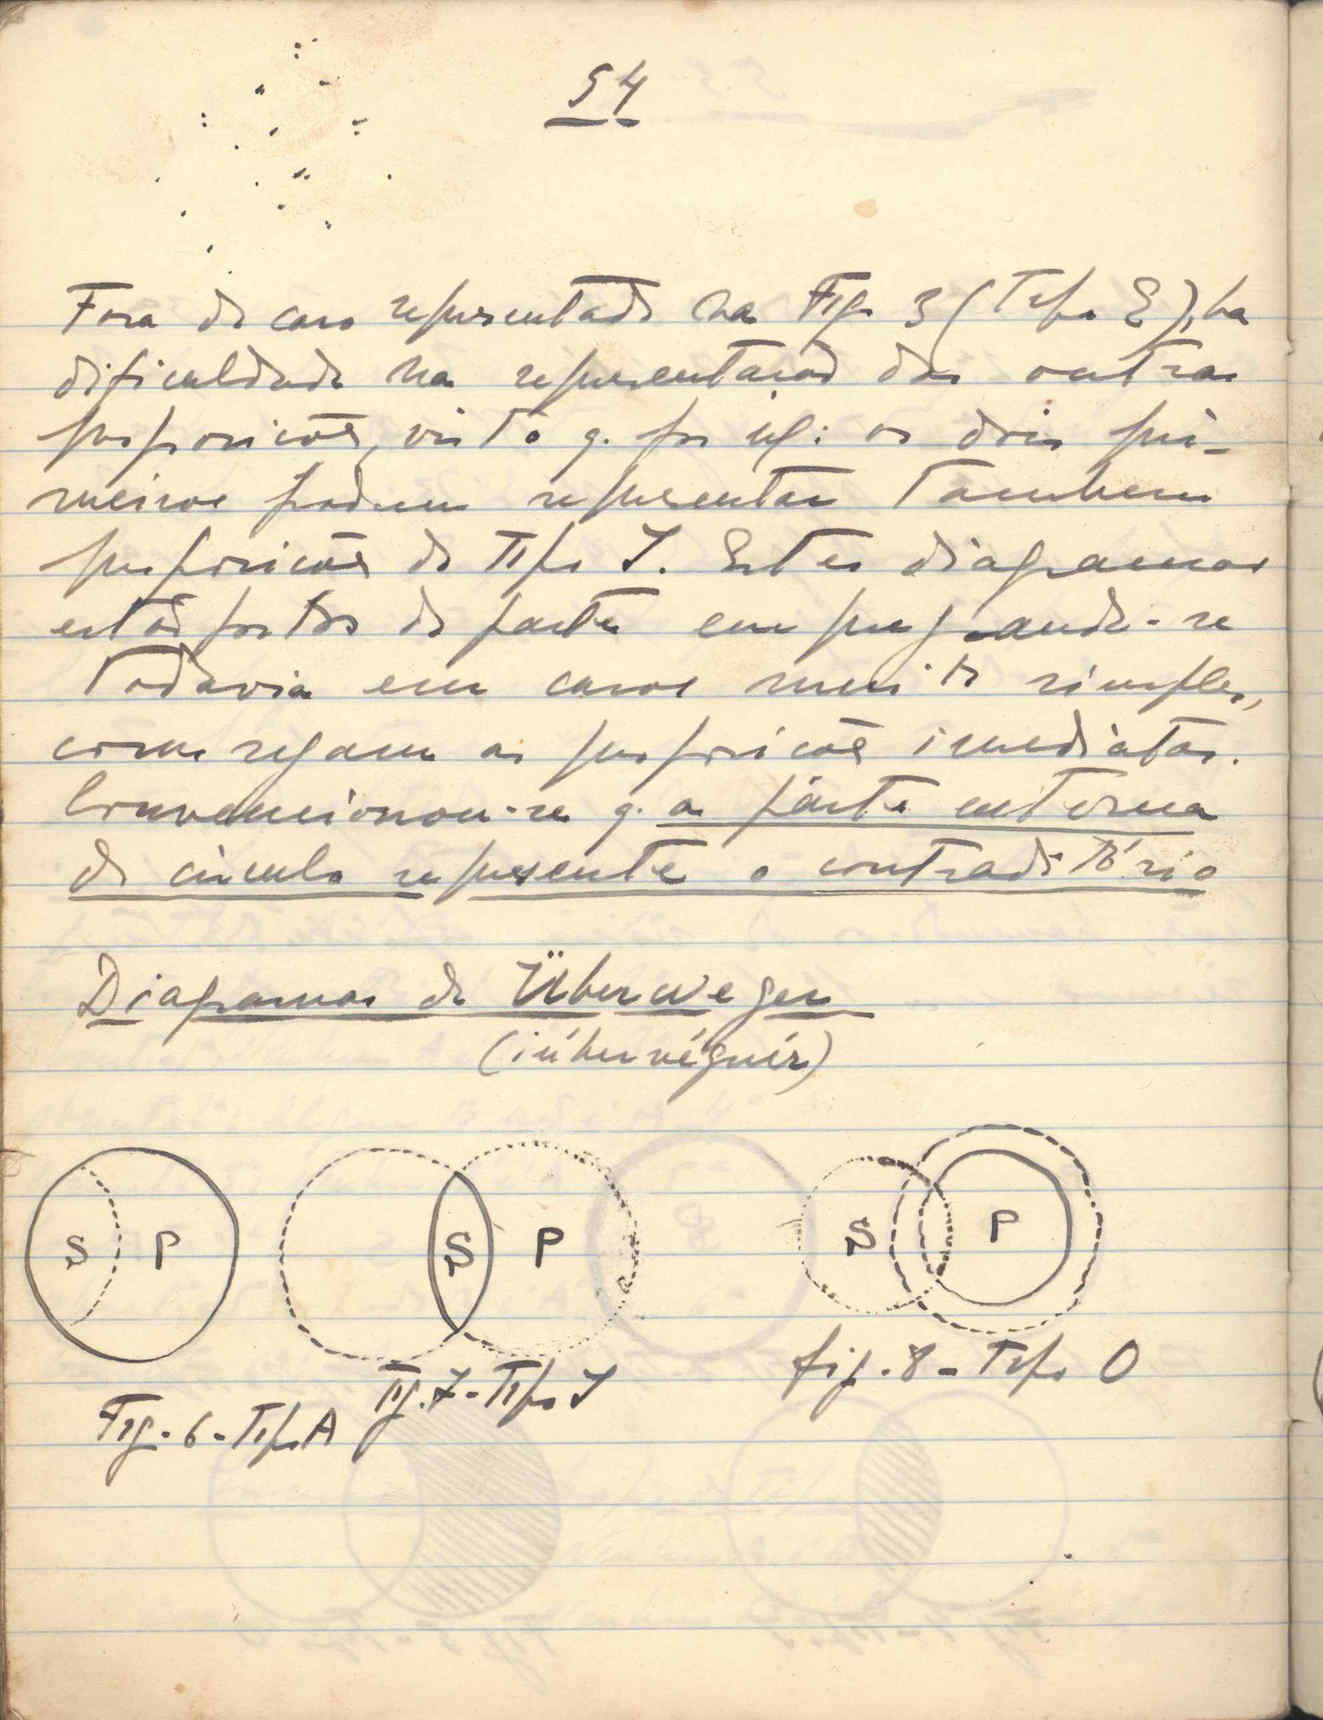 54
Fora do caso representado na Fig. 3 (Tipo E), ha
dificuldade na representacao das outras
proposicoes, visto q. por ex: os dois pri-
meiros podem representar tambem
proposicoes do Tipo I. Estes diagramas
estão postos de parte empregando-se
todavia em casos muito simples,
como sejam as proposicoes imediatas.
Convencionou-se q. a parte externa
do circulo represente o contraditório
Diagramas de Überweger
(iúbervéguér)
S P
S P
S P
Fig. 6 - Tipo A
Fig. 7 - Tipo I
fig. 8 - Tipo O